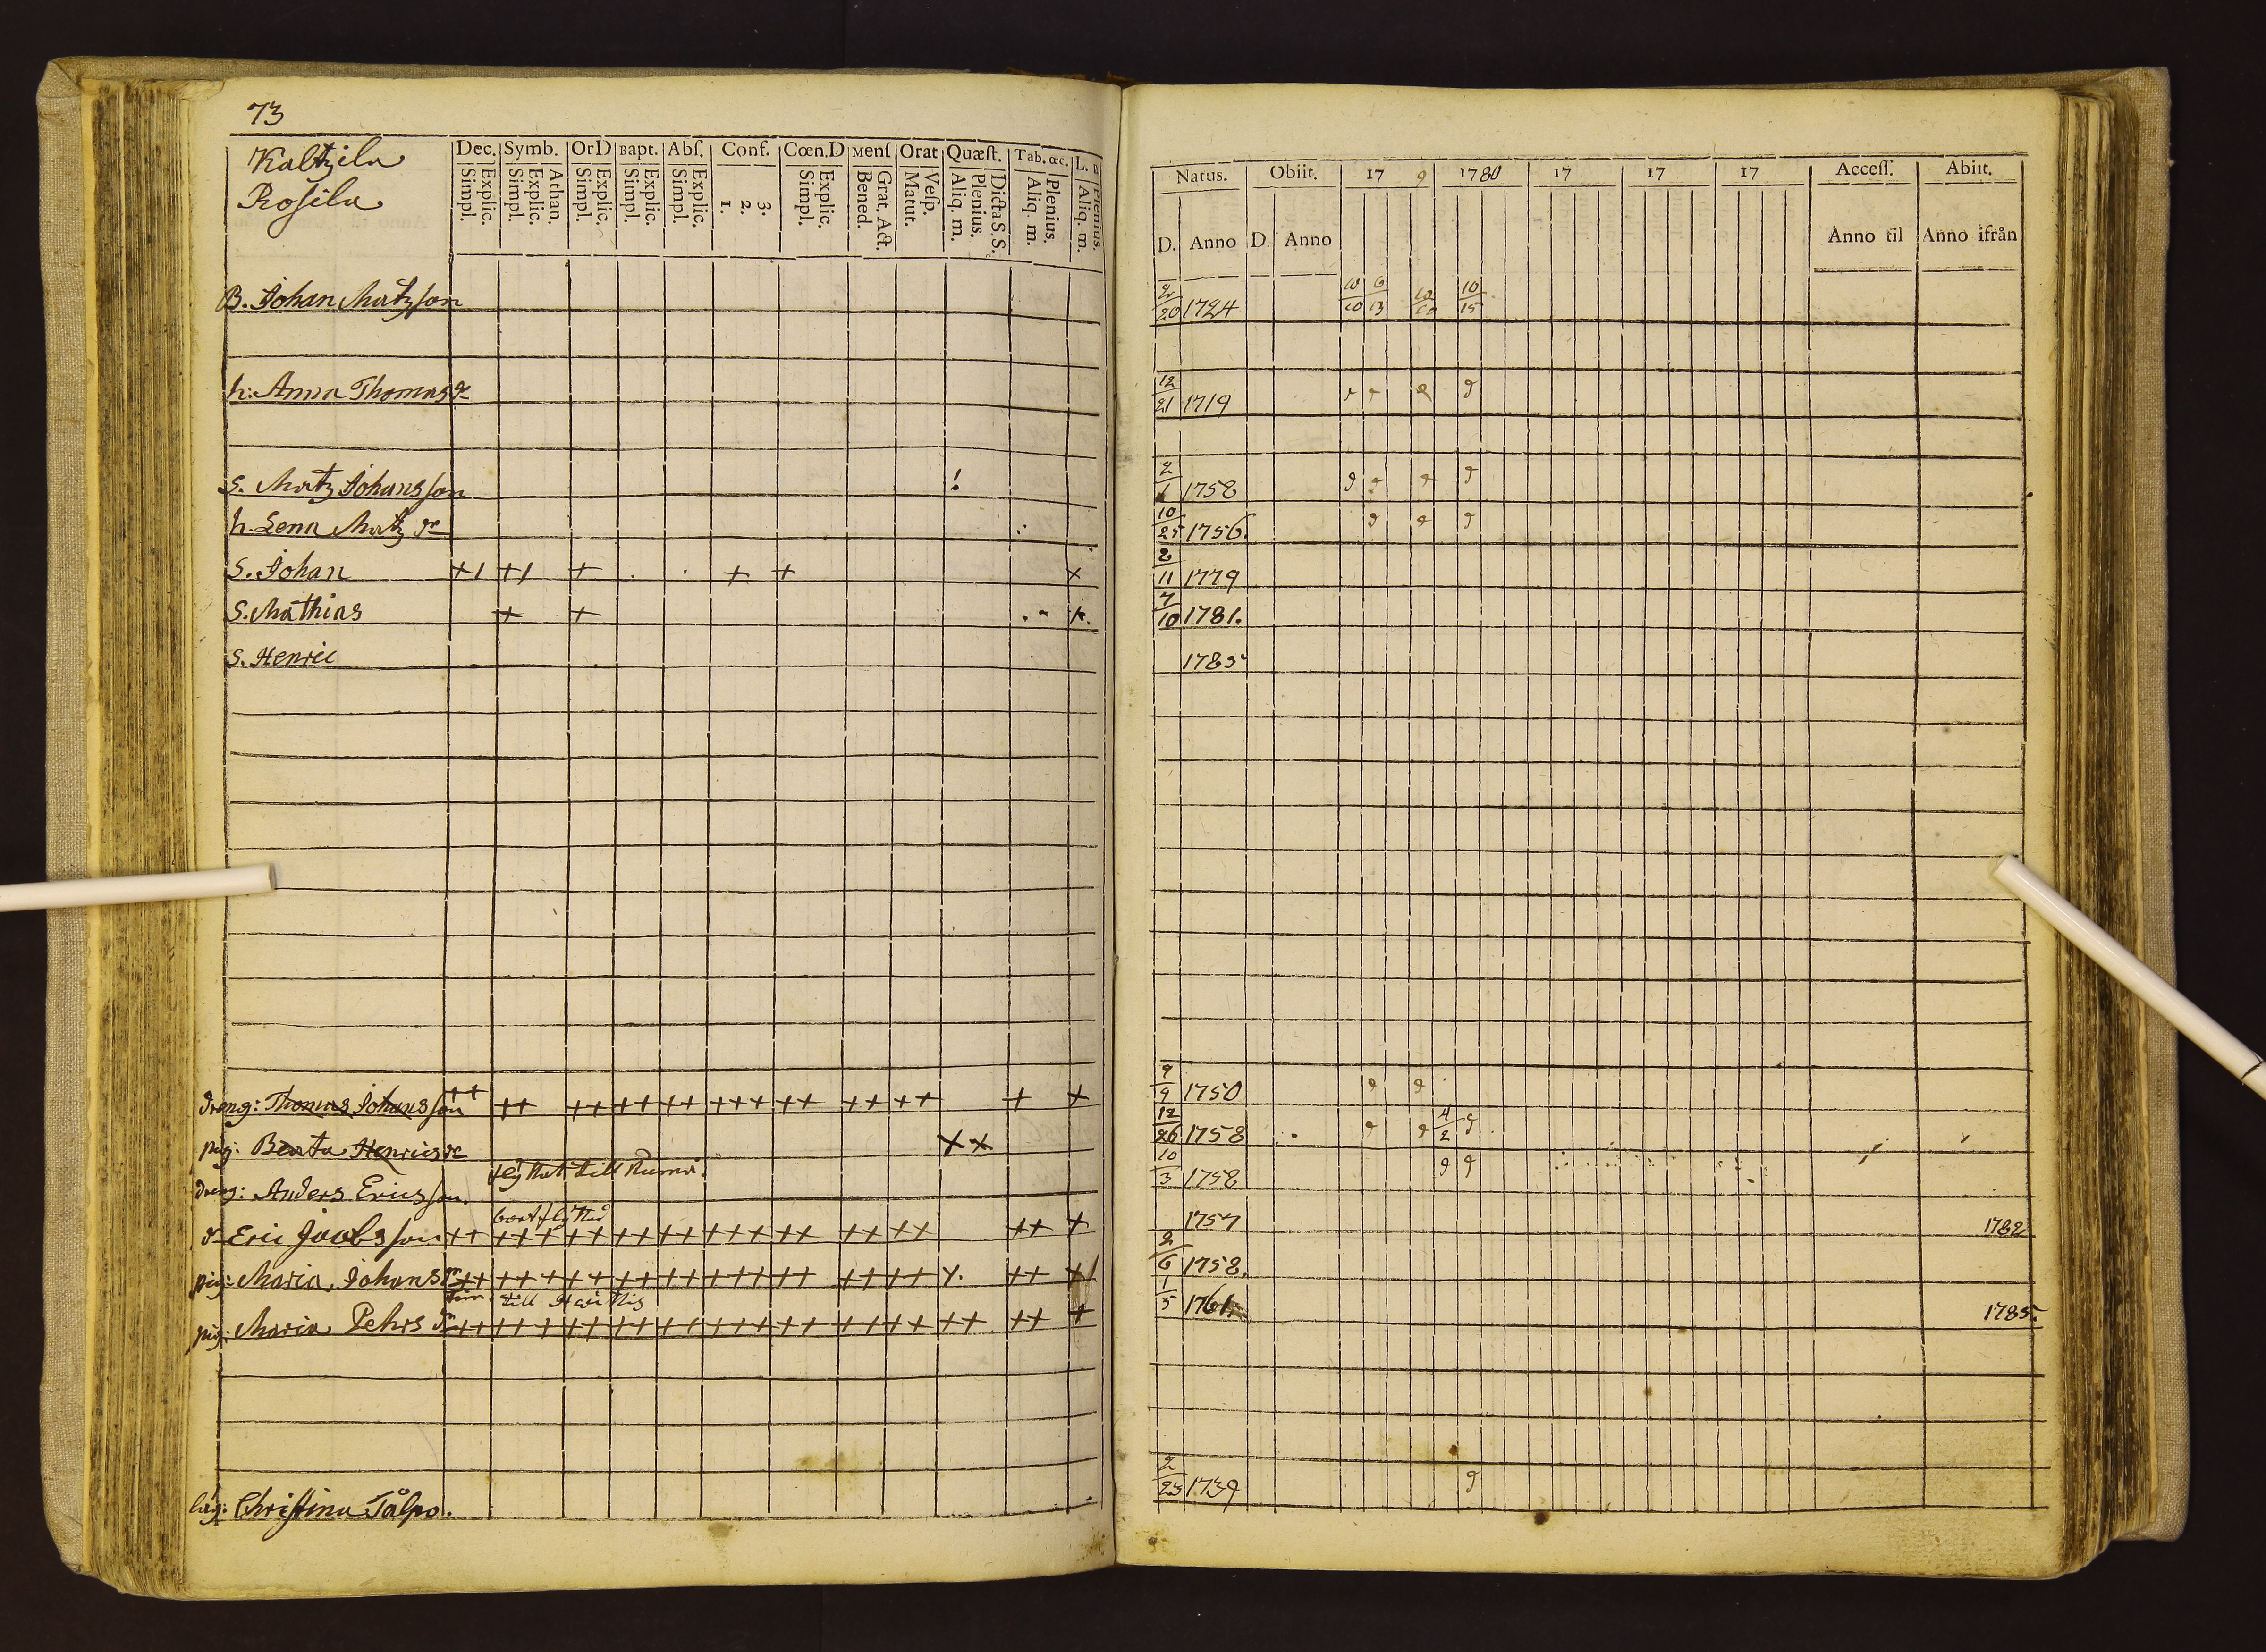 73
Kaltzila
Rosila
Dec. Symb. OrD Bapt. Abſ. Conf. Cœn.D Menſ Orat Quæſt. Tab. œc. L.
Explic. Simpl. Athan. Explic. Simpl. Explic. Simpl. Explic. Simpl. Explic. Simpl. 3. 2. 1. Explic. Simpl. Grat. Act. Bened. Veſp. Matut. Dicta S. S. Plenius. Aliq. m. Plenius. Aliq. m. Plenius. Aliq. m.
Natus. Obiit. 17 9 1780 17 17 17 Acceſſ. Abiit.
D. Anno D. Anno Anno til Anno ifrån
B. Johan Matzson 2/20 1724 10/15
h: Anna Thomasdr 12/21 1719
S. Matz Johansson ! 2/1 1758
h. Lena Matzdr 10/25 1756.
S. Johan +/ +/ + . . + + x 2/11 1779
S. Mathias + + 7/10 1781.
S. Henric 1785
dreng: Thomas Johansson ++ ++ ++ ++ ++ +++ ++ ++ ++ + + 9/9 1750
pig: Beata Henricsdr x x 12/26 1758 4/2
flythat till
dreng: Anders Ericsson. 10/3 1758
bortflyttad
dr Eric Jacobsson ++ +++ ++ ++ ++ +++ ++ ++ ++ ++ + 1757 1782
pig: Maria Johansdr ++ +++ ++ ++ ++ +++ ++ ++ ++ ++ 2/6 1758.
till
pig: Maria Pehrsdr ++ +++ ++ ++ ++ +++ ++ ++ ++ ++ ++ + 1/5 1761 1785.
Christina Tålpo. 2/23 1739